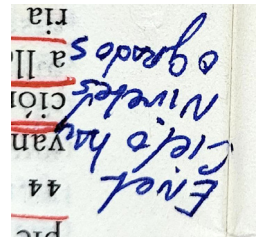 En el
cielo hay
Niveles
o grados
44
van
ción
a ll
ria